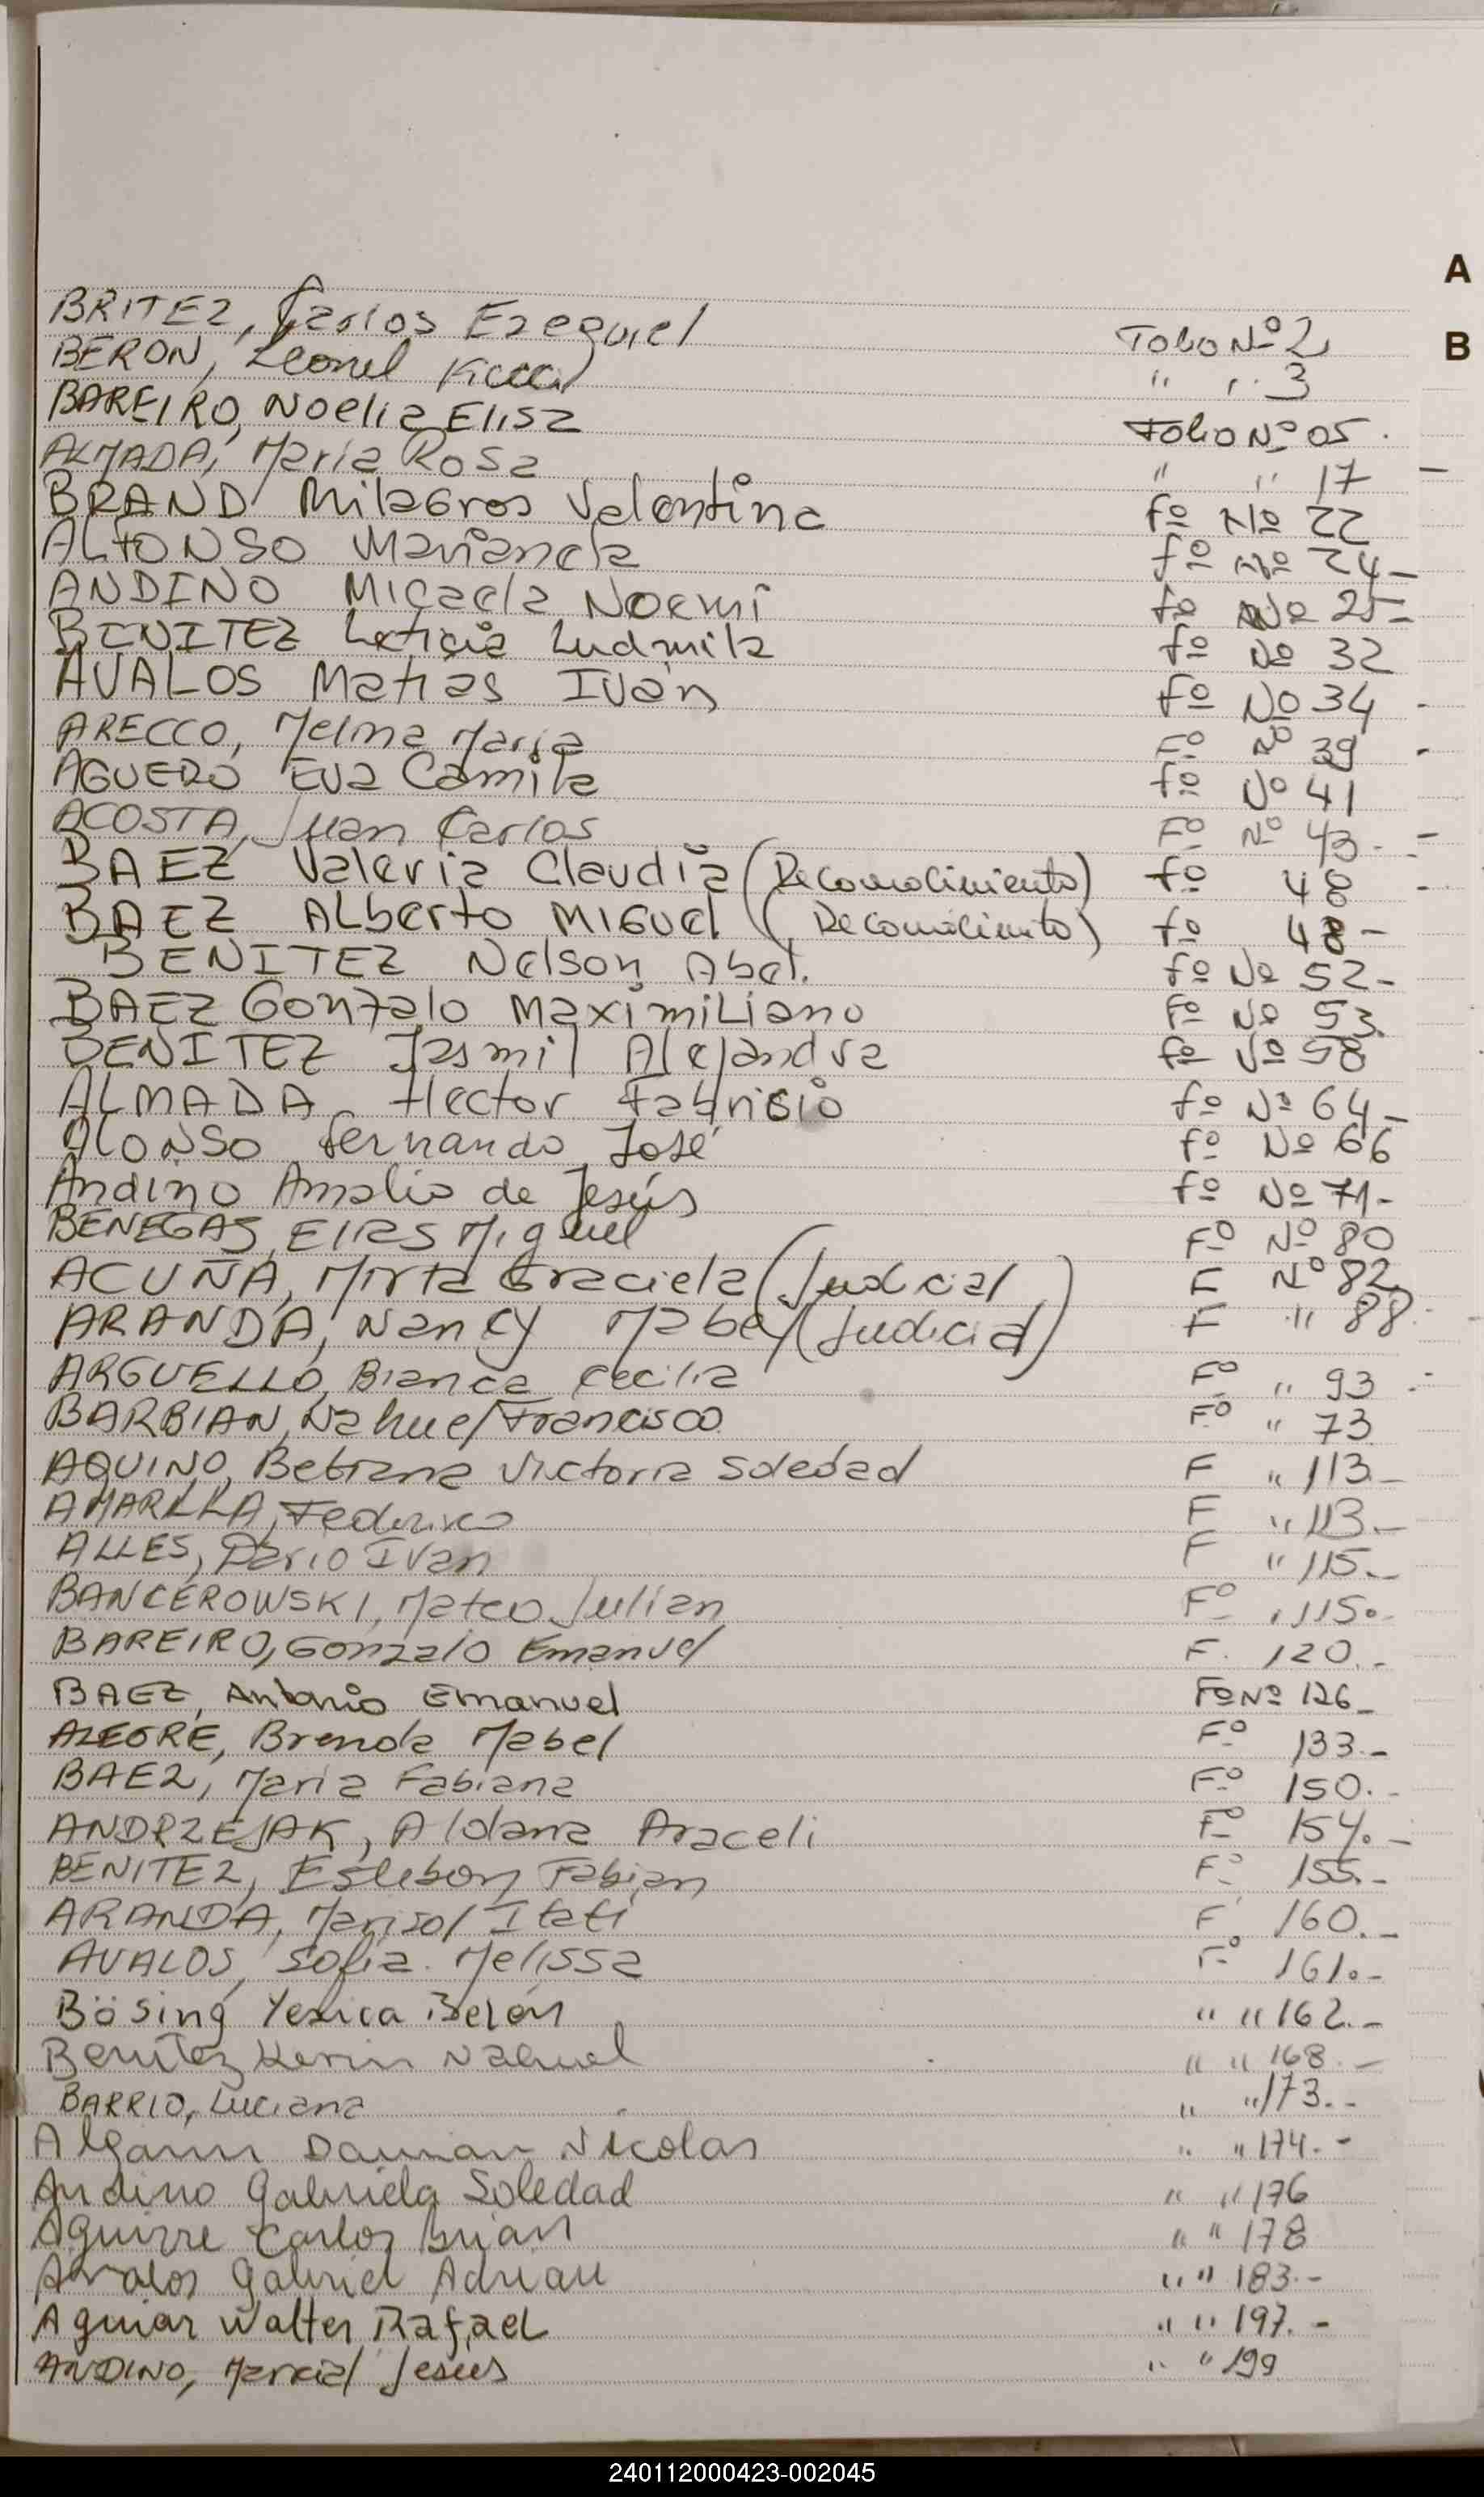 A
B
BRITEZ, Carlos Ezequiel Folio Nº 2
BERON, Leonel " " 3
BAREIRO, Noelia Elisa Folio Nº 05.
ALMADA, Maria Rosa " " 17 -
BRAND Milagros Valentina fº Nº 22
ALFONSO Marianela fº Nº 24-
ANDINO Micaela Noemí fº Nº 25-
BENITEZ Leticia Ludmila fº Nº 32
AVALOS Matias Iván fº Nº 34 -
ARECCO, Melma Maria Fº Nº 39 -
AGUERO Eva Camila fº Nº 41
ACOSTA, Juan Carlos Fº Nº 43. -
BAEZ Valeria Claudia (Reconocimiento) fº 48 -
BAEZ Alberto Miguel (Reconocimiento) fº 48 -
BENITEZ Nelson Abel. fº Nº 52-
BAEZ Gonzalo Maximiliano Fº Nº 53.
BENITEZ Jasmil Alejandra fº Nº 58
ALMADA Hector Fabricio fº Nº 64-
ALONSO Fernando José fº Nº 66
Andino Amalia de Jesús fº Nº 71-
BENEGAS, Elias Miguel Fº Nº 80
ACUÑA, Mirta Graciela (Judicial) F Nº 82
ARANDA, Nancy Mabel (Judicial) F " 88.
ARGUELLO, Bianca Cecilia Fº " 93
BARBIAN, Nahuel Francisco Fº " 73
AQUINO, Betiana Victoria Soledad F " 113.-
AMARILLA, Federico F " 113.-
ALLES, Dario Ivan F " 115.-
BANCEROWSKI, Mateo Julian Fº " 115.-
BAREIRO, Gonzalo Emanuel F. 120.-
BAEZ, Antonio Emanuel Fº Nº 126-
ALEGRE, Brenda Mabel Fº 133.-
BAEZ, Maria Fabiana Fº 150.-
ANDRZEJAK, Aldana Araceli Fº 154.-
BENITEZ, Esteban Fabian Fº 155.-
ARANDA, Marisol Itati F 160.-
AVALOS, Sofia Melissa Fº 161.-
Bösing Yesica Belén " " 162.-
Benítez Kevin Nahuel " " 168.-
BARRIO, Luciana " " 173.-
Damian Nicolas " " 174.-
Andino Gabriela Soledad " " 176
Aguirre Carlos Brian " " 178
Avalos Gabriel Adrian " " 183.-
Aguiar Walter Rafael " " 197.-
ANDINO, Marcial Jesus " " 199
240112000423-002045